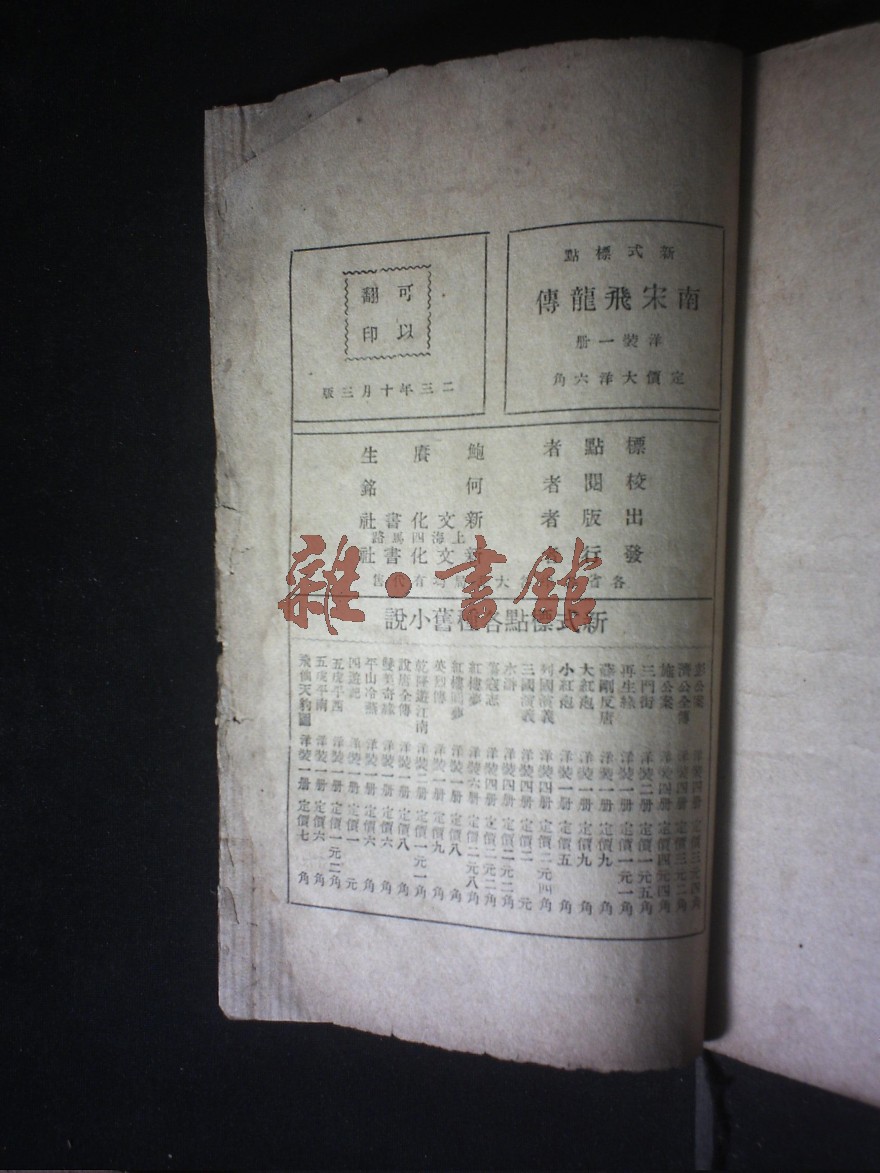 新式標點
南宋飛龍傳
洋裝一册
定價大洋六角
可以
翻印
二三年十月三版
標點者 鮑賡生
校閱者 何銘
出版者 新文化書社
上海四馬路
發行者 新文化書社
各省 大 均有代售
雜·書館
新式標點各種舊小說
彭公案 洋裝四册 定價三元四角
濟公全傳 洋裝四册 定價三元二角
施公案 洋裝四册 定價四元四角
三門街 洋裝二册 定價一元五角
再生緣 洋裝一册 定價一元一角
薛剛反唐 洋裝一册 定價九角
大紅袍 洋裝一册 定價九角
小紅袍 洋裝一册 定價五角
列國演義 洋裝四册 定價二元四角
三國演義 洋裝四册 定價二元
水滸 洋裝四册 定價二元二角
蕩寇志 洋裝四册 定價二元二角
紅樓夢 洋裝六册 定價二元八角
紅樓圓夢 洋裝一册 定價八角
英烈傳 洋裝一册 定價九角
乾隆遊江南 洋裝二册 定價一元一角
說唐全傳 洋裝一册 定價八角
雙鳳奇緣 洋裝一册 定價六角
平山冷燕 洋裝一册 定價六角
四遊記 洋裝一册 定價一元
五虎平西 洋裝一册 定價一元二角
五虎平南 洋裝一册 定價六角
飛仙天豹圖 洋裝一册 定價七角